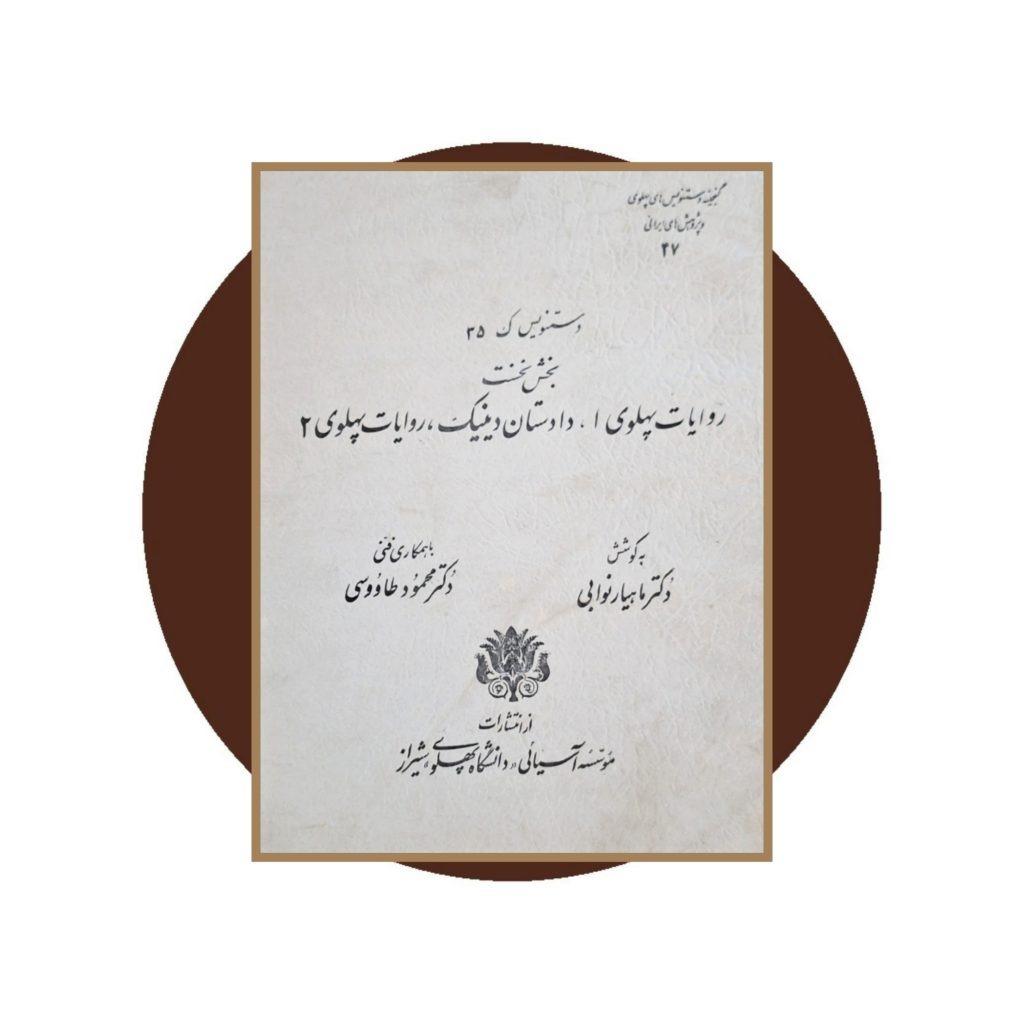 گنجینه دستنویس‌های پهلوی
و پژوهش‌های ایرانی
۴۷
دستنویس ک ۳۵
بخش نخست
روایات پهلوی ۱. دادستان دینیک، روایات پهلوی ۲
به کوشش
دکتر ماهیار نوابی
با همکاری فنّی
دُکتر محمُود طاوُوسی
از انتشارات
مُوسّسه آسیائی «دانشگاه پهلوی» شیراز